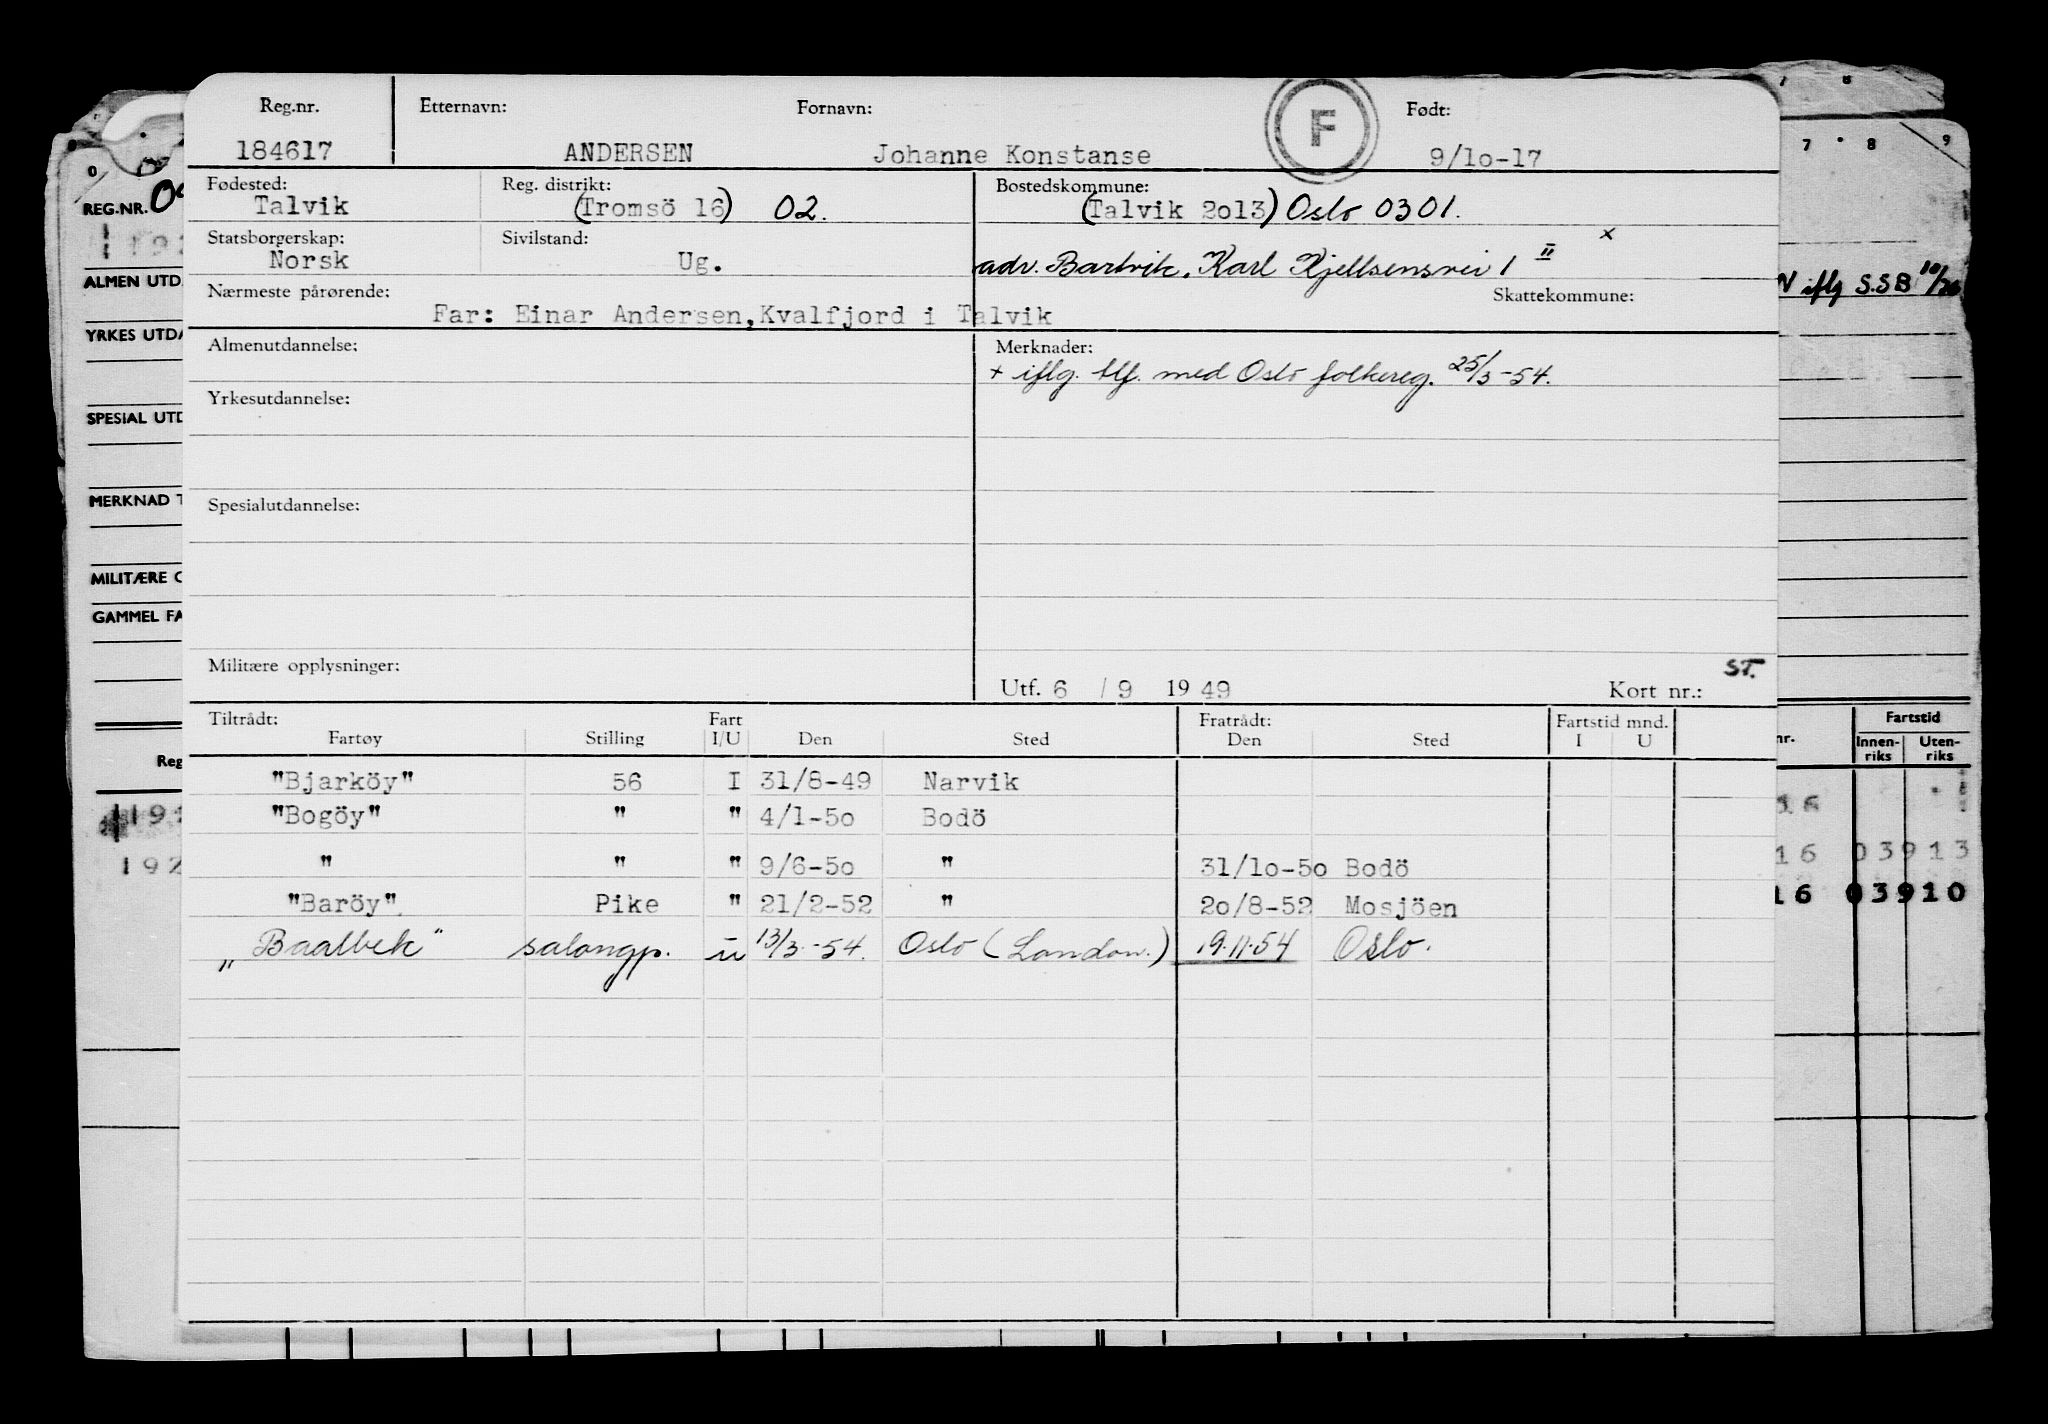 Reg.nr. Etternavn: Fornavn: F Født:
184617 ANDERSEN Johanne Konstanse 9/10-17
Fødested: Reg. distrikt: Bostedskommune:
Talvik (Tromsö 16) 02. (Talvik 2013) Oslo 0301.
Statsborgerskap: Sivilstand: x
Norsk Ug. adv. Bartvik, Karl Kjellsensvei 1 II
Nærmeste pårørende: Skattekommune:
Far: Einar Andersen, Kvalfjord i Talvik
Almenutdannelse: Merknader:
+ iflg. tlf. med Oslo folkereg. 25/3-54.
Yrkesutdannelse:
Spesialutdannelse:
Militære opplysninger: ST.
Utf. 6 / 9 19 49 Kort nr.:
Tiltrådt: Fart Fratrådt: Fartstid mnd.
Fartøy Stilling I/U Den Sted Den Sted I U
"Bjarköy" 56 I 31/8-49 Narvik
"Bogöy" " " 4/1-50 Bodö
" " " 9/6-50 " 31/10-50 Bodö
"Baröy" Pike " 21/2-52 " 20/8-52 Mosjöen
„Baalbek" salongp. u 13/3-54. Oslo (London.) 19.11.54 Oslo.
0
REG.NR.
ALMEN UTD
YRKES UTDA
SPESIAL UTD
MERKNAD T
MILITÆRE O
GAMMEL FA
Reg
192
7 8
7 8 9
iflg S.S.B 10/
nr. Fartstid
Innen-riks Uten-riks
16
16 03913
16 03910